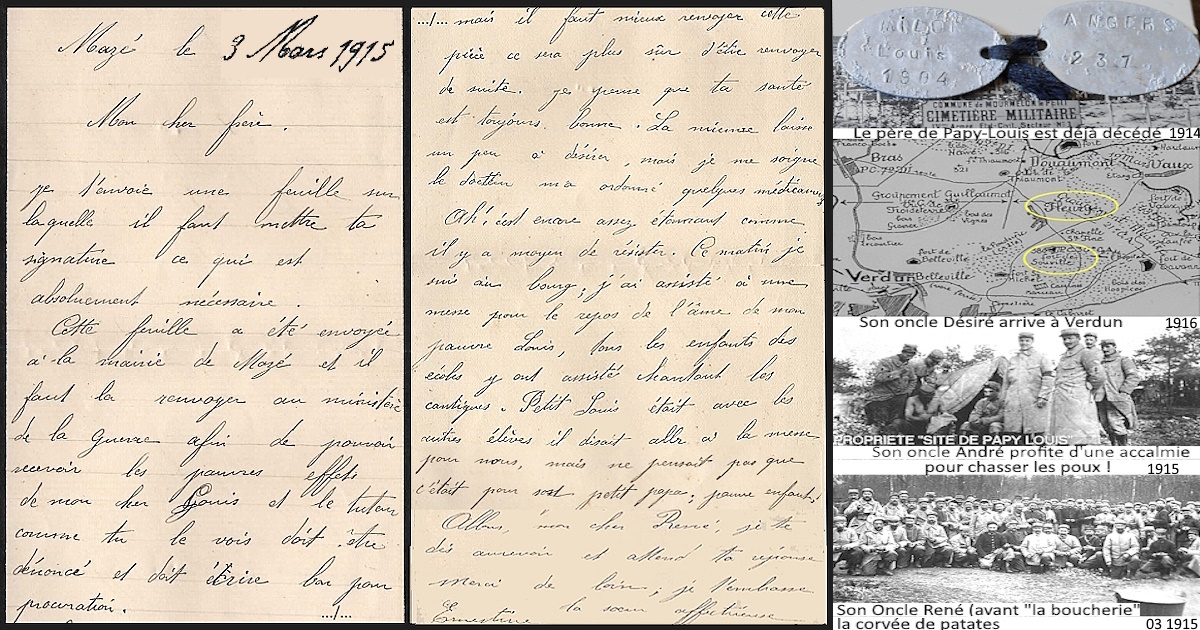 Mazé le 3 Mars 1915
Mon cher frère.
je t'envoie une feuille sur
laquelle il faut mettre ta
signature ce qui est
absolument nécessaire.
Cette feuille a été envoyée
à la mairie de Mazé et il
faut la renvoyer au ministère
de la Guerre afin de pouvoir
recevoir les pauvres effets
de mon cher Louis et le tuteur
comme tu le vois doit être
dénoncé et doit écrire bon pour
procuration.
.../...
.../... mais il faut mieux renvoyer cette
pièce ce sera plus sûr d'être renvoyer
de suite. je pense que ta santé
est toujours bonne. La mienne laisse
un peu à désirer, mais je me soigne
le docteur m'a ordonné quelques médicaments
Ah! c'est encore assez étonnant comme
il y a moyen de résister. Ce matin je
suis au bourg; j'ai assisté à une
messe pour le repos de l'âme de mon
pauvre Louis, tous les enfants des
écoles y ont assisté chantant les
cantiques. Petit Louis était avec les
autres élèves il disait allr à la messe
pour nous, mais ne pensait pas que
c'était pour son petit papa; pauvre enfant!
Allons mon cher René je te
dis aurevoir et attend ta réponse
merci de loin; je t'embrasse
Ernestine ta sœur affectueuse
MILON
Louis
1904
ANGERS
237
COMMUNE de MOURMELON-le-PETIT
CIMETIÈRE MILITAIRE
Le père de Papy-Louis est déjà décédé 1914
Bras
Douaumont
Vaux
Thiaumont
Groupement Guillaumat
Froideterre
Fleury
Belleville
Verdun
Belleville
Souville
Son oncle Désiré arrive à Verdun 1916
PROPRIETE "SITE DE PAPY LOUIS"
Son oncle André profite d'une accalmie
pour chasser les poux ! 1915
Son Oncle René (avant "la boucherie"
la corvée de patates 03 1915